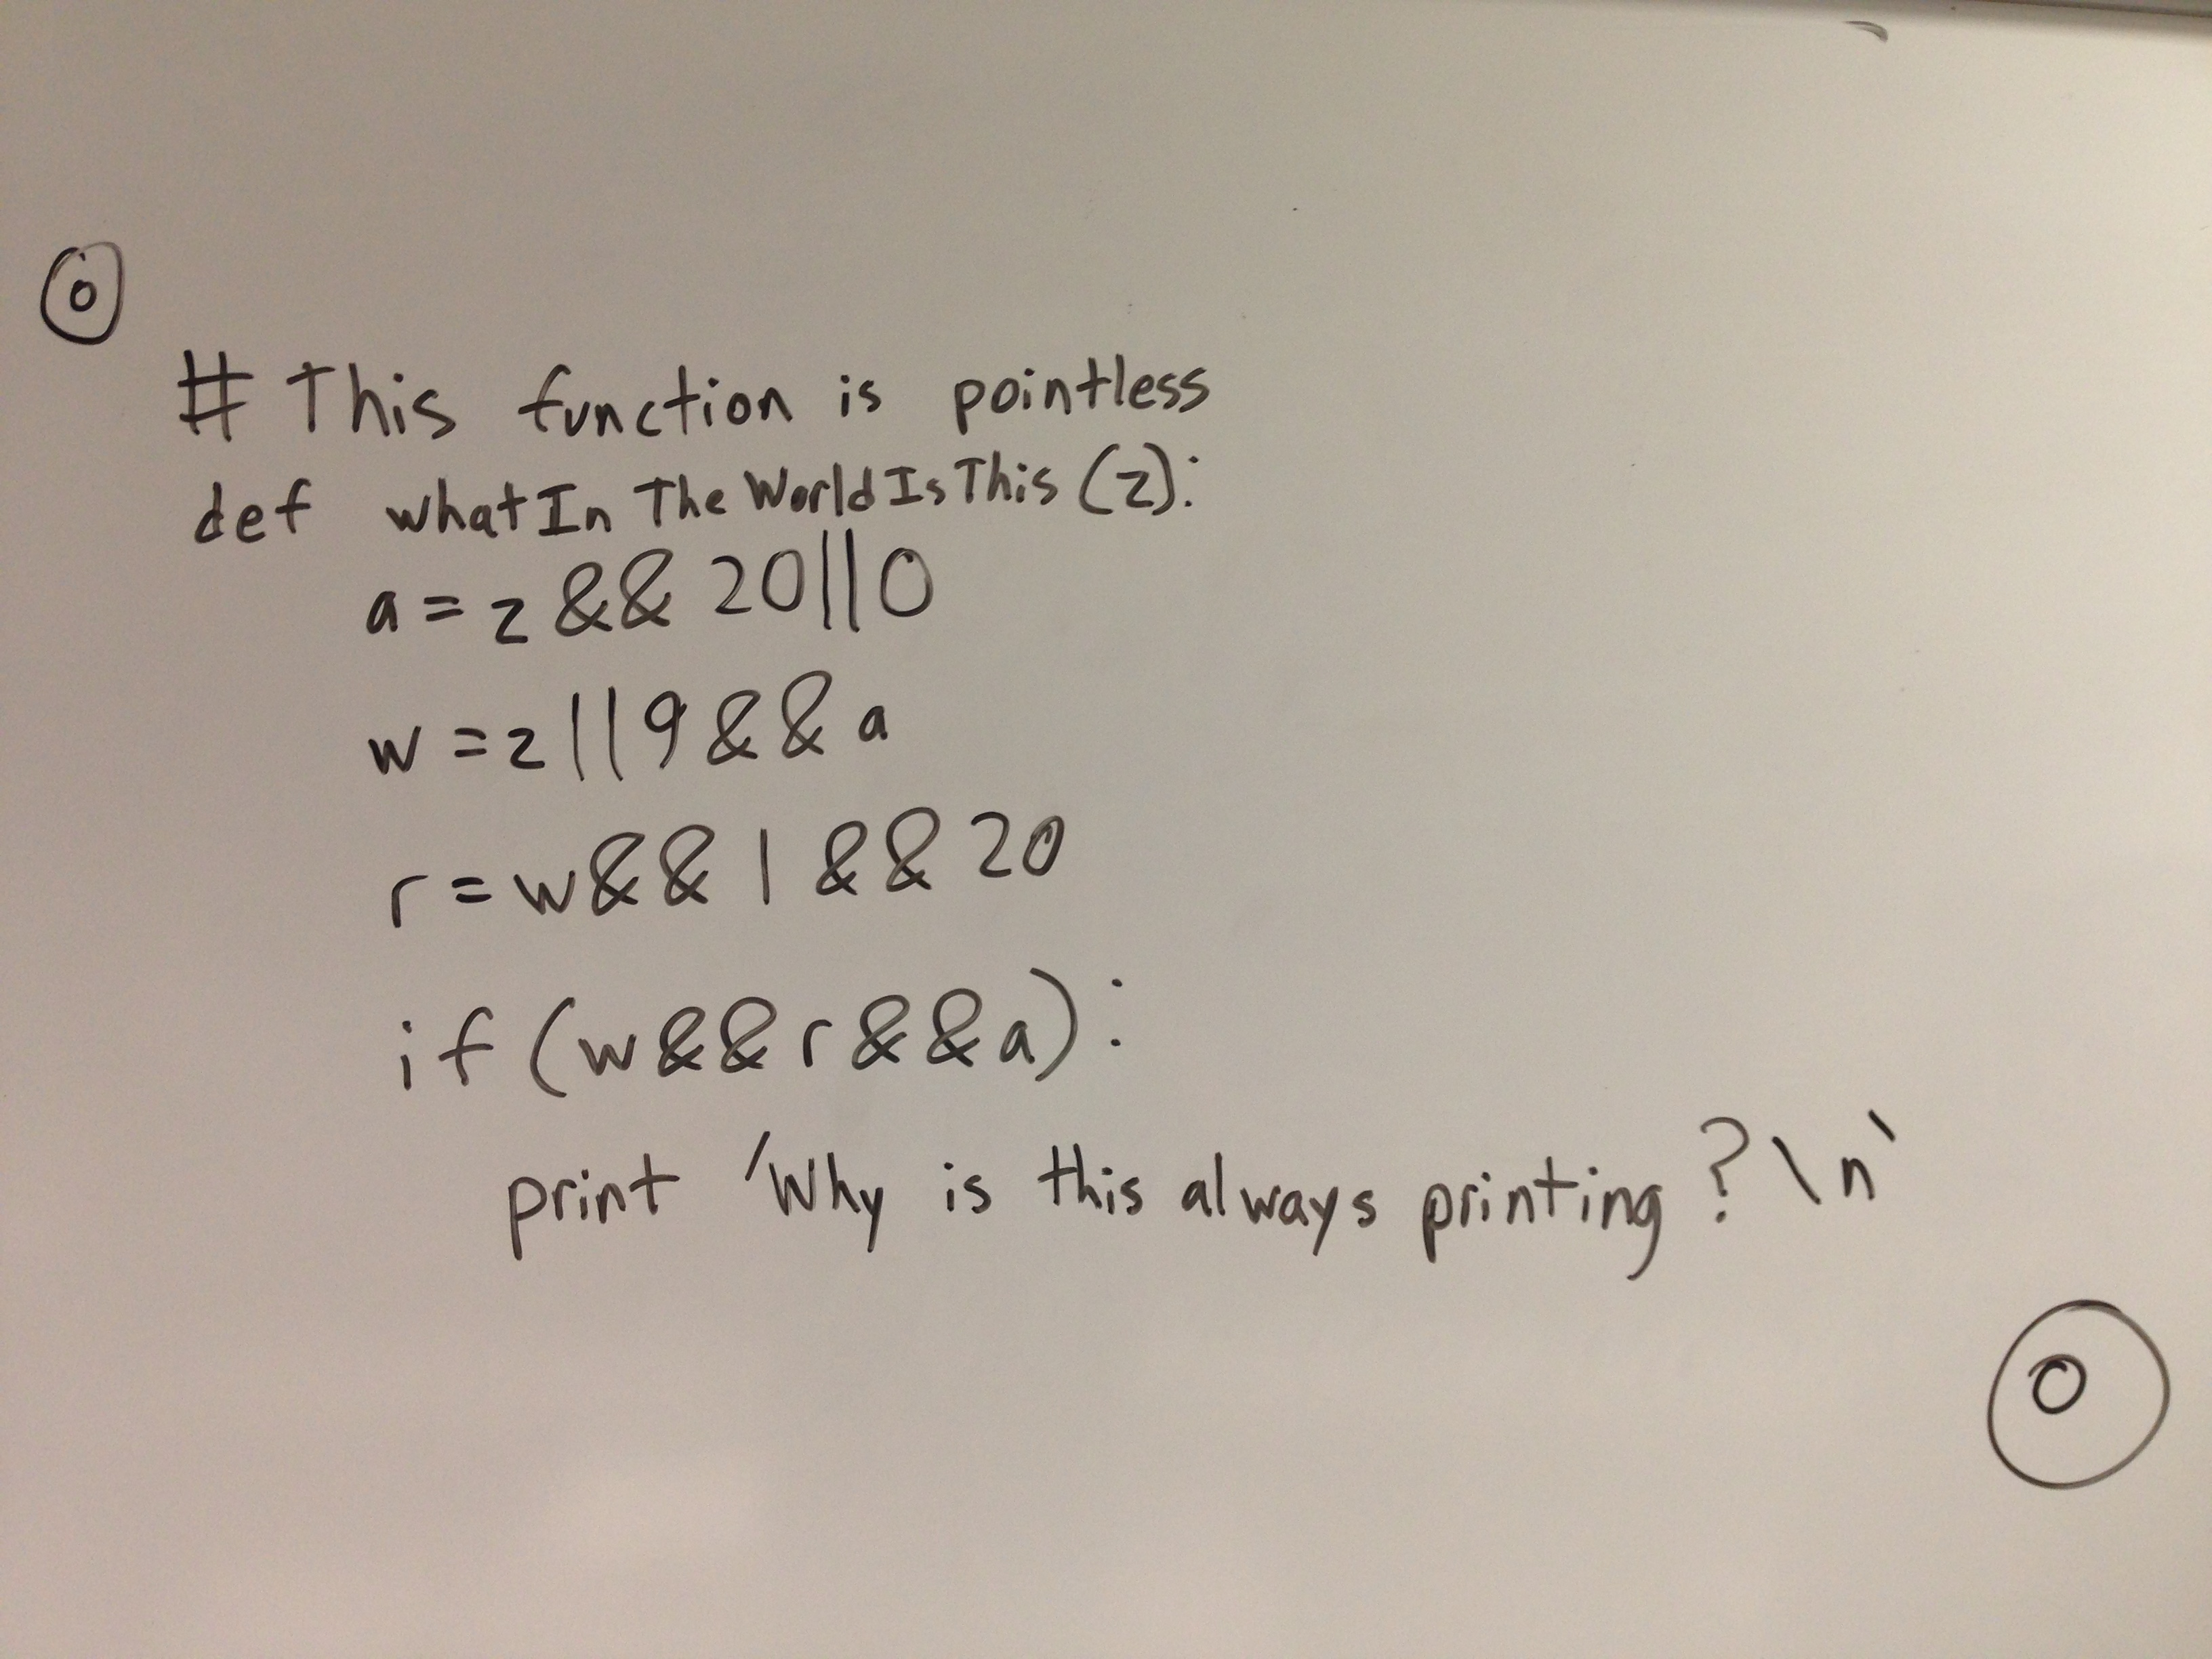 0
# This function is pointless
def whatInTheWorldIsThis(z):
a = z && 20||0
w = z||9 && a
r = w && 1 && 20
if (w && r && a):
print 'Why is this always printing?\n'
0